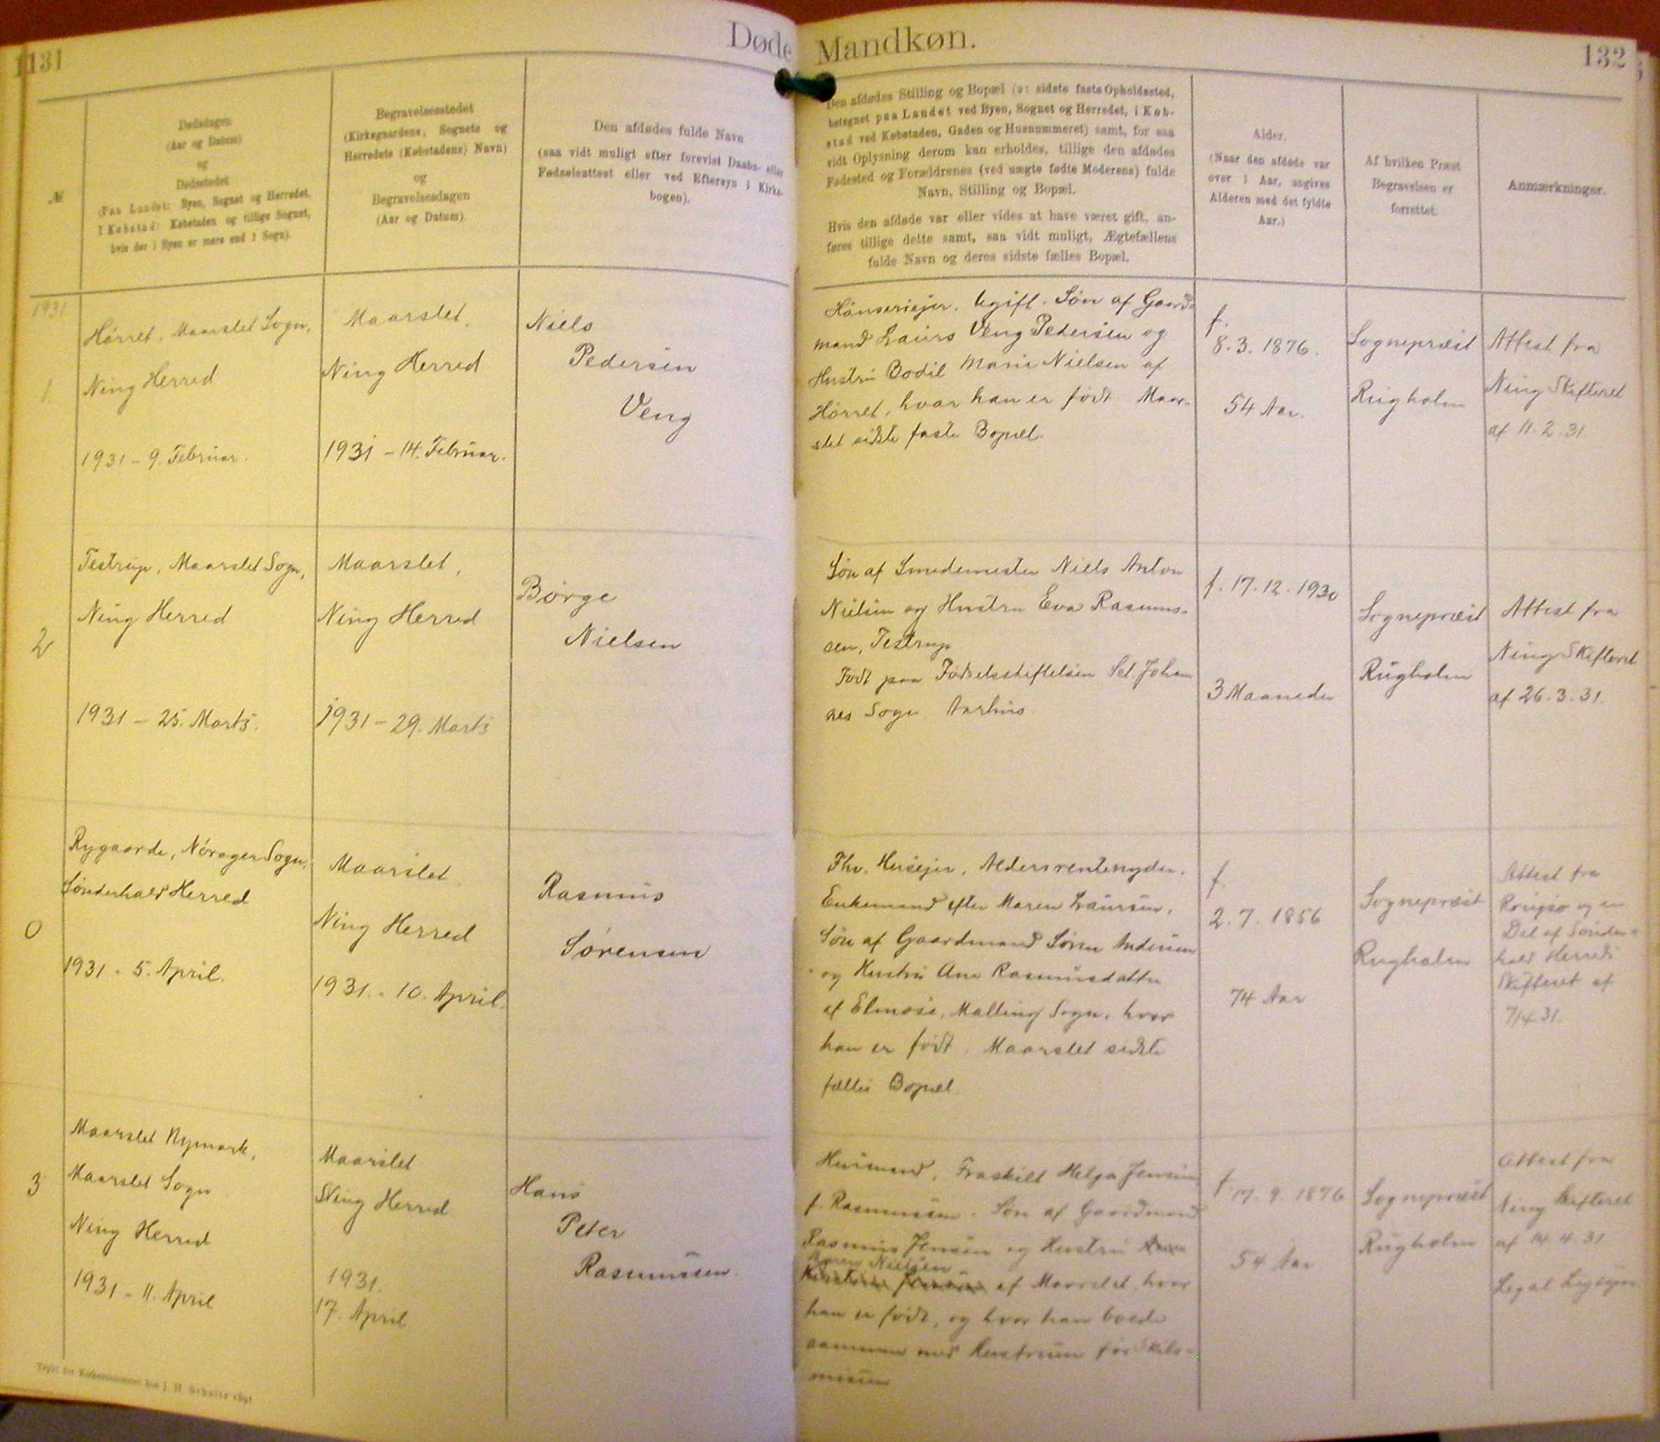 131
Døde
Mandkøn.
132
№
Dødsdagen
(Aar og Datum)
og
Dødsstedet
(Paa Landet: Byen, Sognet og Herredet,
I Købstad: Købstaden og tillige Sognet,
hvis der i Byen er mere end 1 Sogn).
Begravelsesstedet
(Kirkegaardens, Sognets og
Herredets (Købstadens) Navn)
og
Begravelsesdagen
(Aar og Datum).
Den afdødes fulde Navn
(saa vidt muligt efter forevist Daabs- eller
Fødselsattest eller ved Eftersyn i Kirke-
bogen).
Den afdødes Stilling og Bopæl (ɔ: sidste faste Opholdssted,
betegnet paa Landet ved Byen, Sognet og Herredet, i Køb-
stad ved Købstaden, Gaden og Husnummeret) samt, for saa
vidt Oplysning derom kan erholdes, tillige den afdødes
Fødested og Forældrenes (ved uægte fødte Moderens) fulde
Navn, Stilling og Bopæl.
Hvis den afdøde var eller vides at have været gift, an-
føres tillige dette samt, saa vidt muligt, Ægtefællens
fulde Navn og deres sidste fælles Bopæl.
Alder.
(Naar den afdøde var
over 1 Aar, angives
Alderen med det fyldte
Aar.)
Af hvilken Præst
Begravelsen er
forrettet.
Anmærkninger.
1931
1
Hørret, Maarslet Sogn,
Ning Herred
1931 - 9. Februar.
Maarslet,
Ning Herred
1931 - 14. Februar.
Niels
Pedersen
Veng
Hønseriejer. Ugift. Søn af Gaard-
mand Laurs Veng Pedersen og
Hustru Bodil Marie Nielsen af
Hørret, hvor han er født. Maar-
slet sidste faste Bopæl.
f.
8. 3. 1876.
54 Aar.
Sognepræst
Rugholm
Attest fra
Ning Skifteret
af 11. 2. 31
2
Testrup, Maarslet Sogn,
Ning Herred
1931 - 25. Marts.
Maarslet,
Ning Herred
1931 - 29. Marts
Børge
Nielsen
Søn af Smedemester Niels Anton
Nielsen og Hustru Eva Rasmus-
sen, Testrup
Født paa Fødselsstiftelsen Sct. Johan
nes Sogn Aarhus.
f. 17. 12. 1930
3 Maaneder
Sognepræst
Rugholm
Attest fra
Ning Skifteret
af 26. 3. 31.
0
Rygaarde, Nørager Sogn,
Sønderhald Herred
1931 - 5. April.
Maarslet
Ning Herred
1931. - 10. April.
Rasmus
Sørensen
Fhv. Husejer, Aldersrentenyder.
Enkemand efter Maren Laursen,
Søn af Gaardmand Søren Andersen
og Hustru Ane Rasmusdatter
af Elmose, Malling Sogn, hvor
han er født. Maarslet sidste
fælles Bopæl.
f.
2. 7. 1856
74 Aar
Sognepræst
Rugholm
Attest fra
Rougsø og en
Del af Sønder-
hald Herreds
Skifteret af
7/4 31.
3
Maarslet Nymark,
Maarslet Sogn
Ning Herred
1931 - 11. April
Maarslet
Ning Herred
1931.
17. April
Hans
Peter
Rasmussen.
Husmand, Fraskilt Helga Jensen
f. Rasmussen. Søn af Gaardmand
Rasmus Jensen og Hustru
Maren Nielsen
af Maarslet, hvor
han er født, og hvor han boede
sammen med Hustruen før Skils-
missen
f. 17. 9. 1876
54 Aar
Sognepræst
Rugholm
Attest fra
Ning Skifteret
af 14. 4. 31
Legal Ligsyn.